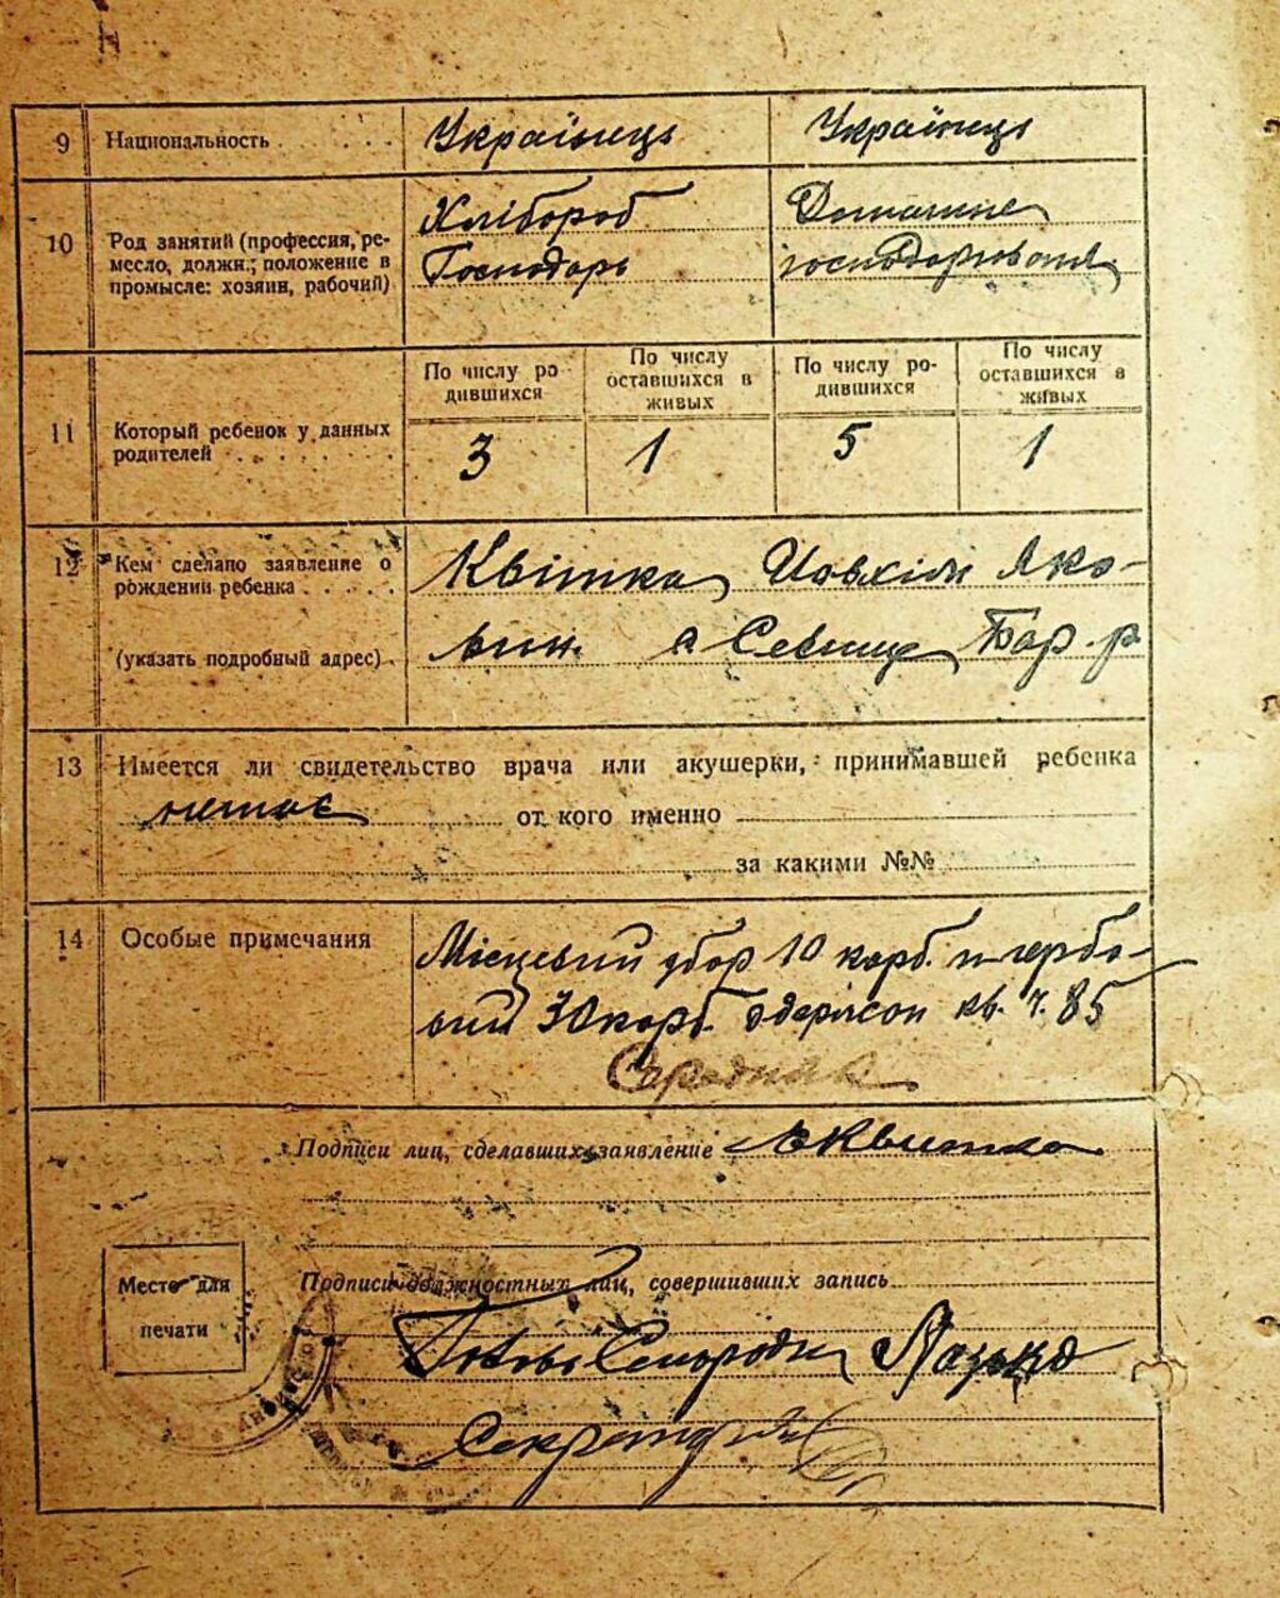 9 Национальность . . . . Українець Українець
10 Род занятий (профессия, ре-
месло, должн.; положение в
промысле: хозяин, рабочий)
Хлібороб
Господарь
Домашнє
господарювання
По числу ро
дившихся
По числу
оставшихся в
живых
По числу ро-
дившихся
По числу
оставшихся в
живых
11 Который ребенок у данных
родителей . . . . . . .
3 1 5 1
12 Кем сделано заявление о
рождении ребенка . . . . .
(указать подробный адрес) .
Квітка Иовхім Яко-
вич. Бар. р
13 Имеется ли свидетельство врача или акушерки, принимавшей ребенка
немає от кого именно
за какими №№
14 Особые примечания
Місцевий збор 10 карб. и гербо-
вий 30 карб. одержан кв. ч. 85
Середняк
Подписи лиц, сделавших заявление Квитка
Подписи должностных лиц, совершивших запись
Место для
печати
Голова
Секретарь